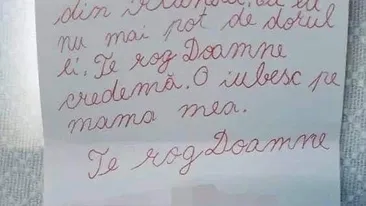 din
nu mai pot de dorul
ei. Te rog Doamne
credemă. O iubesc pe
mama mea.
Te rog Doamne